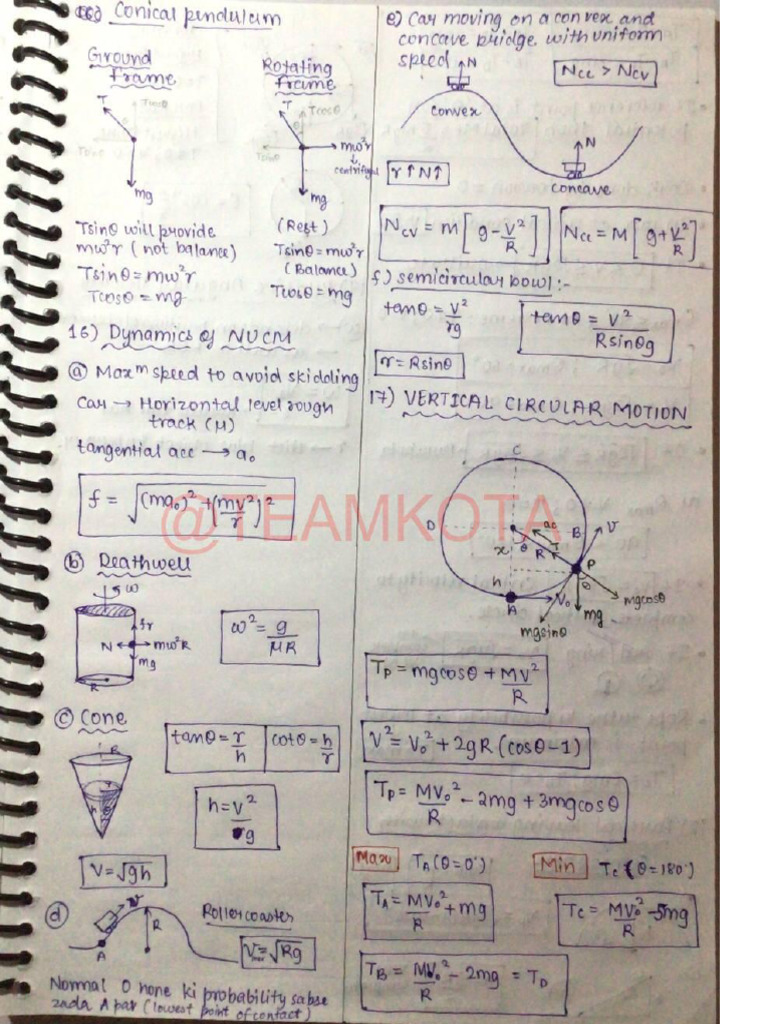 Conical pendulum
Ground
Frame
Rotating
frame
T
Tcosθ
θ
mg
T
Tcosθ
θ
Tsinθ
mω²r
↓
centrifugal
mg
Tsinθ will provide
mω²r (not balance)
Tsinθ = mω²r
Tcosθ = mg
(Rest)
Tsinθ = mω²r
(Balance)
Tcosθ = mg
16) Dynamics of NUCM
ⓐ Maxᵐ speed to avoid skidding
Car → Horizontal level rough
track (μ)
tangential acc → a₀
f = √((ma₀)² + (mv²/r)²)
ⓑ Deathwell
ω
fr
N
mω²R
mg
R
ω² = g/μR
ⓒ Cone
R
r
h
θ
tanθ = r/h
cotθ = h/r
h = v²/g
V = √gh
ⓓ
v
Rollercoaster
R
A
Vmax = √Rg
Normal 0 hone ki probability sabse
zada A par (lowest point of contact)
e) Car moving on a convex and
concave bridge with uniform
speed
N
Ncc > Ncv
convex
N
r↑ N↑
concave
Ncv = M[g - V²/R]
Ncc = M[g + V²/R]
f) semicircular bowl :-
tanθ = V²/rg
tanθ = V²/Rsinθg
r = Rsinθ
17) VERTICAL CIRCULAR MOTION
C
D
ac
B
V
x
θ
R
T
P
h
θ
A
V₀
mgcosθ
mg
mgsinθ
Tp = mgcosθ + MV²/R
V² = V₀² + 2gR(cosθ-1)
Tp = MV₀²/R - 2mg + 3mgcosθ
Max
TA (θ = 0°)
Min
Tc (θ = 180°)
TA = MV₀²/R + mg
Tc = MV₀²/R - 5mg
TB = MV₀²/R - 2mg = TD
@TEAMKOTA